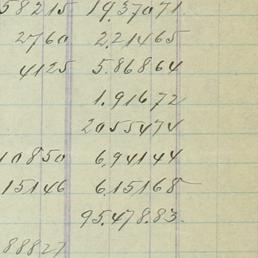 58215 19,37071
2760 2,21465
4125 5,86864
1,91672
2055474
10850 6,94144
15146 6,15168
95,478.83
88827